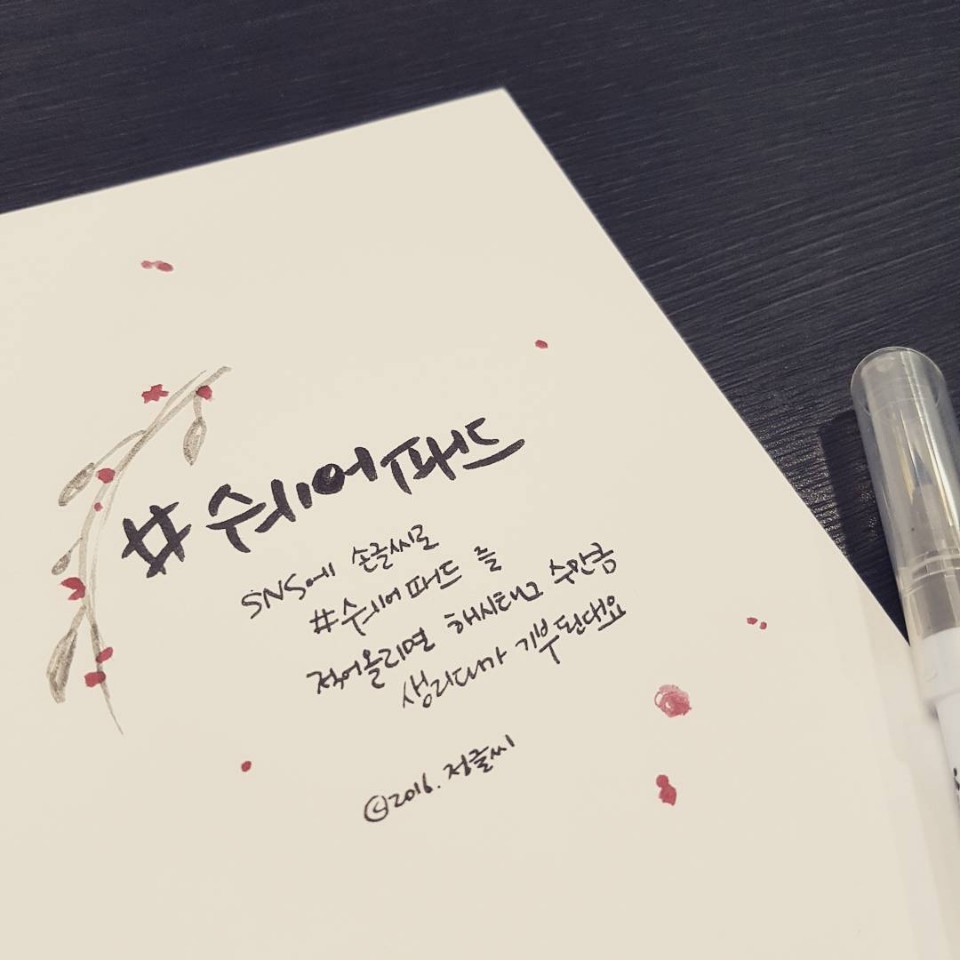 #쉐어패드
SNS에 손글씨로
#쉐어패드 를
적어올리면 해시태그 수만큼
생리대가 기부된대요
©2016. 정글씨